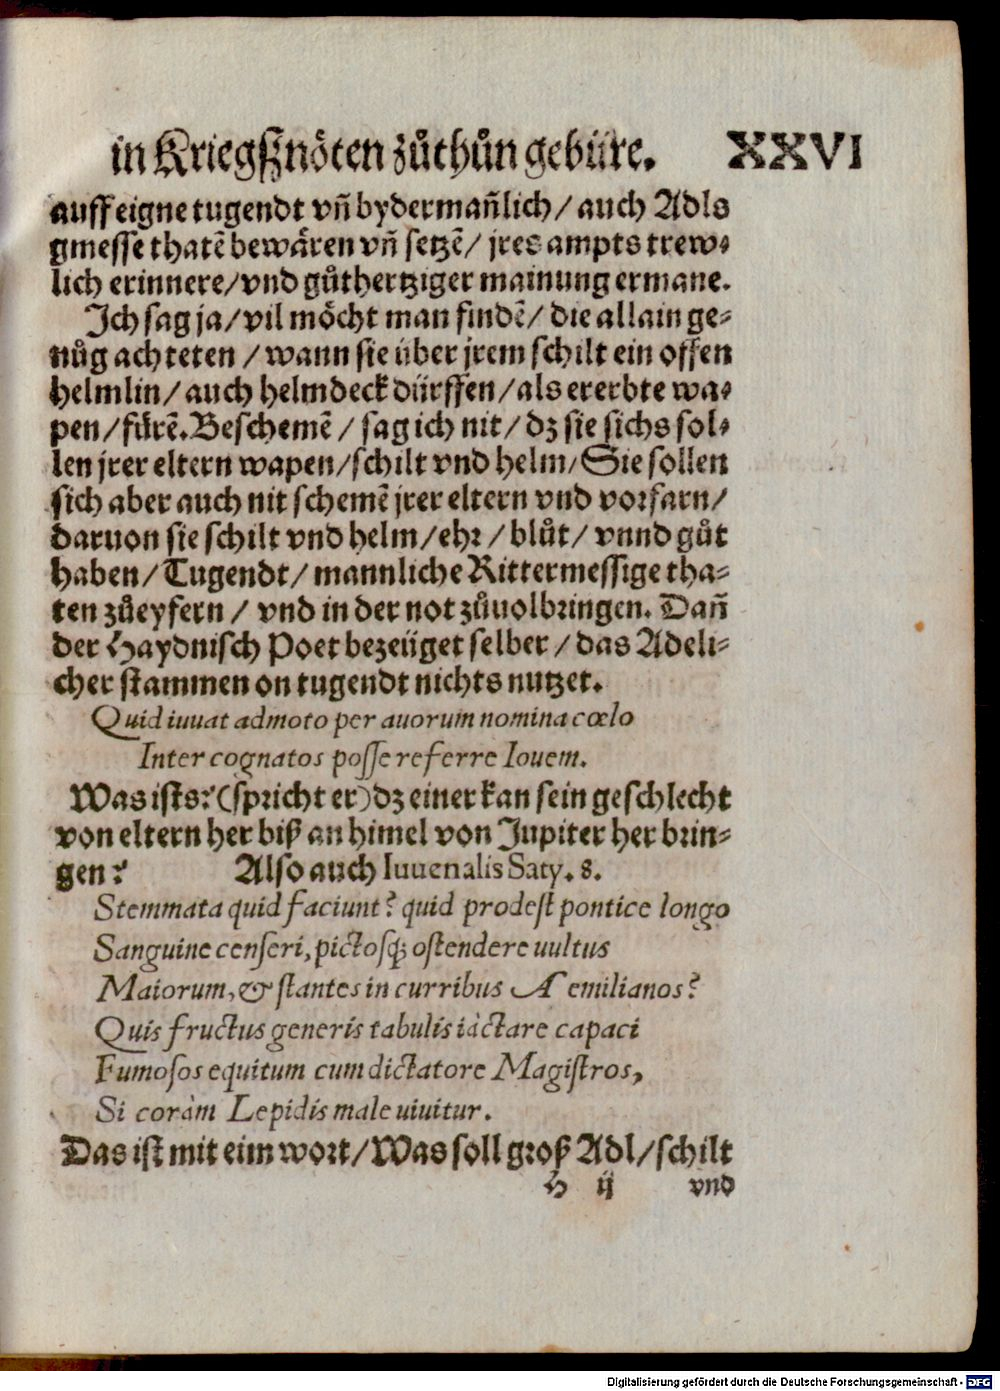 in Kriegßnöten zůthůn gebüre. XXVI
auff eigne tugendt vñ bydermañlich / auch Adls
gmesse thatẽ bewären vñ setzẽ / jres ampts trew⸗
lich erinnere / vnd gůthertziger mainung ermane.
Ich sag ja / vil möcht man findẽ / die allain ge⸗
nůg achteten / wann sie über jrem schilt ein offen
helmlin / auch helmdeck dürffen / als ererbte wa⸗
pen / fůrẽ. Beschemẽ / sag ich nit / dz sie sichs sol⸗
len jrer eltern wapen / schilt vnd helm / Sie sollen
sich aber auch nit schemẽ jrer eltern vnd vorfarn /
daruon sie schilt vnd helm / ehr / blůt / vnnd gůt
haben / Tugendt / mannliche Rittermessige tha⸗
ten zůeyfern / vnd in der not zůuolbringen. Dañ
der Haydnisch Poet bezeüget selber / das Adeli⸗
cher stammen on tugendt nichts nutzet.
Quid iuuat admoto per auorum nomina cœlo
Inter cognatos posse referre Iouem.
Was ists? (spricht er) dz einer kan sein geschlecht
von eltern her biß an himel von Jupiter her brin⸗
gen? Also auch Iuuenalis Saty. 8.
Stemmata quid faciunt? quid prodest pontice longo
Sanguine censeri, pictosq; ostendere uultus
Maiorum, & stantes in curribus Aemilianos?
Quis fructus generis tabulis iàctare capaci
Fumosos equitum cum dictatore Magistros,
Si coràm Lepidis male uiuitur.
Das ist mit eim wort / Was soll groß Adl / schilt
H ij vnd
Digitalisierung gefördert durch die Deutsche Forschungsgemeinschaft - DFG